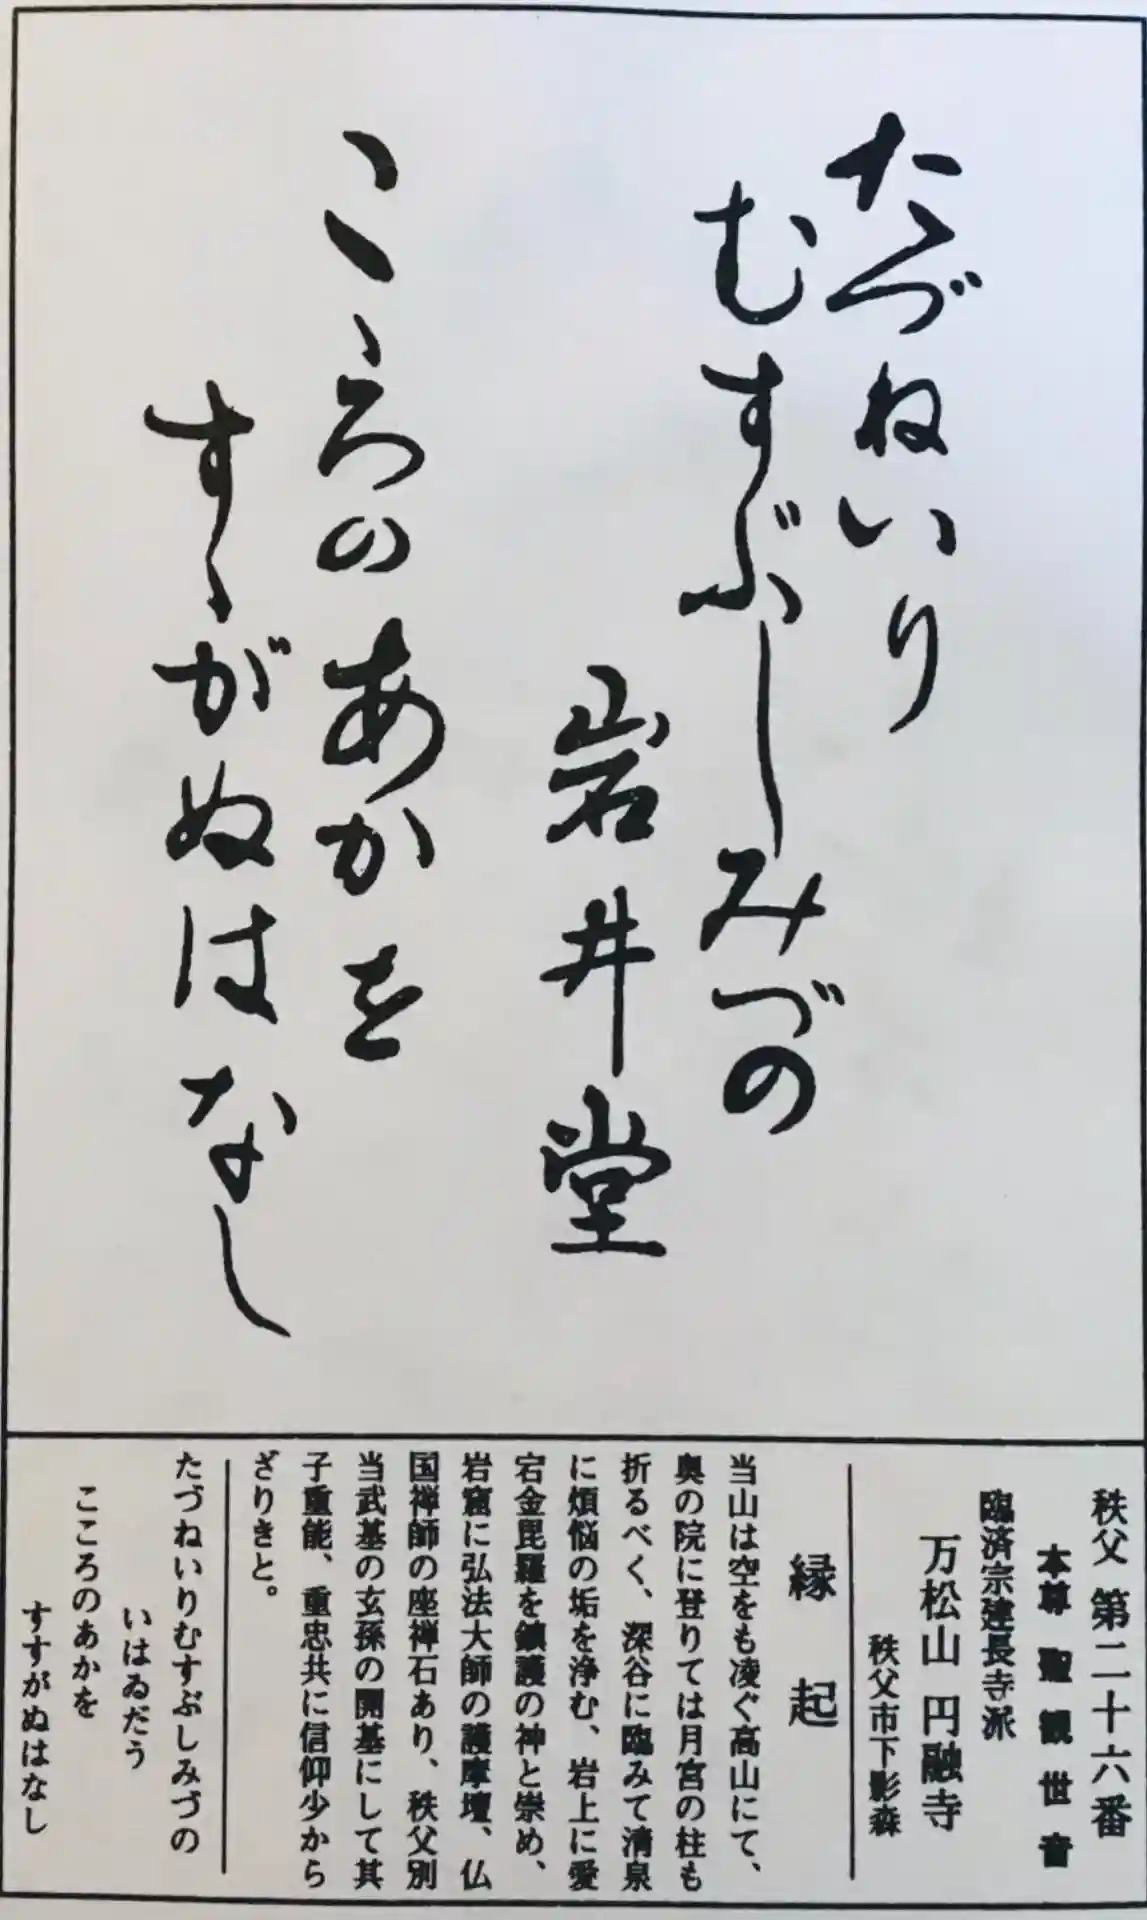 たづねいり
むすぶしみづの
岩井堂
こゝろのあかを
すゝがぬはなし
秩父 第二十六番
本尊 聖観世音
臨済宗建長寺派
万松山 円融寺
秩父市下影森
縁起
当山は空をも凌ぐ高山にて、
奥の院に登りては月宮の柱も
折るべく、深谷に臨みて清泉
に煩悩の垢を浄む、岩上に愛
宕金毘羅を鎮護の神と崇め、
岩窟に弘法大師の護摩壇、仏
国禅師の座禅石あり、秩父別
当武基の玄孫の開基にして其
子重能、重忠共に信仰少から
ざりきと。
たづねいりむすぶしみづの
いはゐだう
こころのあかを
すすがぬはなし